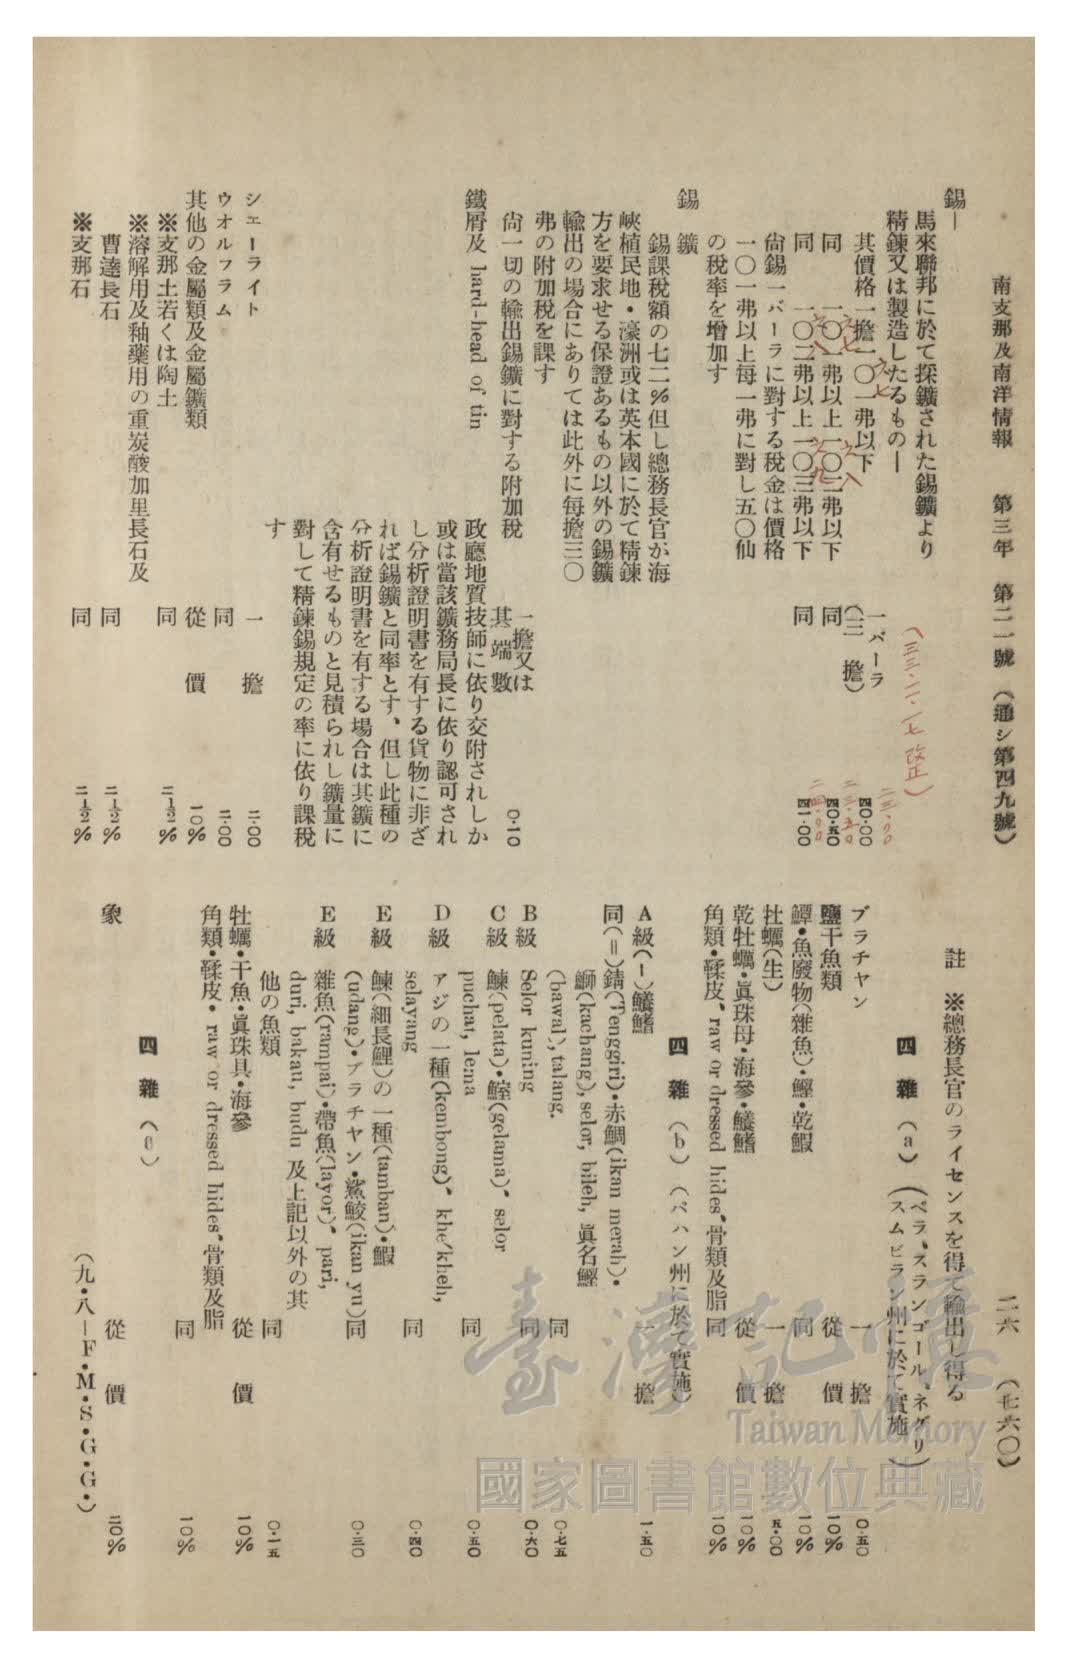 南支那及南洋情報　第三年　第二一號　（通シ第四九號）　二六　（七六〇）
錫―
馬來聯邦に於て採鑛された錫鑛より
精鍊又は製造したるもの―
（三三・二・一七改正）
其價格一擔一〇一弗以下　一バーラ（三擔）　四〇・〇〇
同　一〇一弗以上一〇二弗以下　同　四〇・五〇
同　一〇二弗以上一〇三弗以下　同　四一・〇〇
尙錫一バーラに對する稅金は價格
一〇一弗以上每一弗に對し五〇仙
の稅率を增加す
錫鑛
錫課稅額の七二％但し總務長官が海
峽植民地・濠洲或は英本國に於て精鍊
方を要求せる保證あるもの以外の錫鑛
輸出の場合にありては此外に每擔三〇
弗の附加稅を課す
尙一切の輸出錫鑛に對する附加稅　一擔又は其端數　〇・一〇
鐵屑及 hard-head of tin
政廳地質技師に依り交附されしか
或は當該鑛務局長に依り認可され
し分析證明書を有する貨物に非ざ
れば錫鑛と同率とす、但し此種の
分析證明書を有する場合は其鑛に
含有せるものと見積られし鑛量に
對して精鍊錫規定の率に依り課稅
す
シエーライト　一擔　二・〇〇
ウオルフラム　同　二・〇〇
其他の金屬類及金屬鑛類　從價　一〇％
※支那土若くは陶土　同　二½％
※溶解用及釉藥用の重炭酸加里長石及
曹達長石　同　二½％
※支那石　同　二½％
註　※總務長官のライセンスを得て輸出し得る
四　雜　（a）（ペラ、スランゴール、ネグリ
スムビラン州に於て實施）
ブラチヤン　一擔　〇・五〇
鹽干魚類　從價　一〇％
鱏・魚廢物（雜魚）・鰹・乾鰕　同　一〇％
牡蠣（生）　一擔　五・〇〇
乾牡蠣・眞珠母・海參・鱶鰭　從價　一〇％
角類・鞣皮、raw or dressed hides、骨類及脂　同　一〇％
四　雜　（b）（パハン州に於て實施）
A級（一）鱶鰭　一擔　一・五〇
同（二）鯖（Tenggiri）・赤鯛（ikan merah）・
鰤（kachang）, selor, bileh, 眞名鰹
（bawal）, talang.　同　〇・七五
B級　Selor kuning　同　〇・六〇
C級　鰊（pelata）・鰘（gelama）、selor
puchat, lema　同　〇・五〇
D級　アジの一種（kembong）、khe/kheh,
selayang　同　〇・四〇
E級　鰊（細長鯉）の一種（tamban）・鰕
（udang）・ブラチヤン・鯊鮫（ikan yu）　同　〇・三〇
E級　雜魚（rampai）・帶魚（layor）、pari,
duri, bakau, budu 及上記以外の其
他の魚類　同　〇・一五
牡蠣・干魚・眞珠具・海參　從價　一〇％
角類・鞣皮・raw or dressed hides、骨類及脂　同　一〇％
四　雜　（c）
象　從價　二〇％
（九・八―F・M・S・G・G・）
臺灣記憶
Taiwan Memory
國家圖書館數位典藏